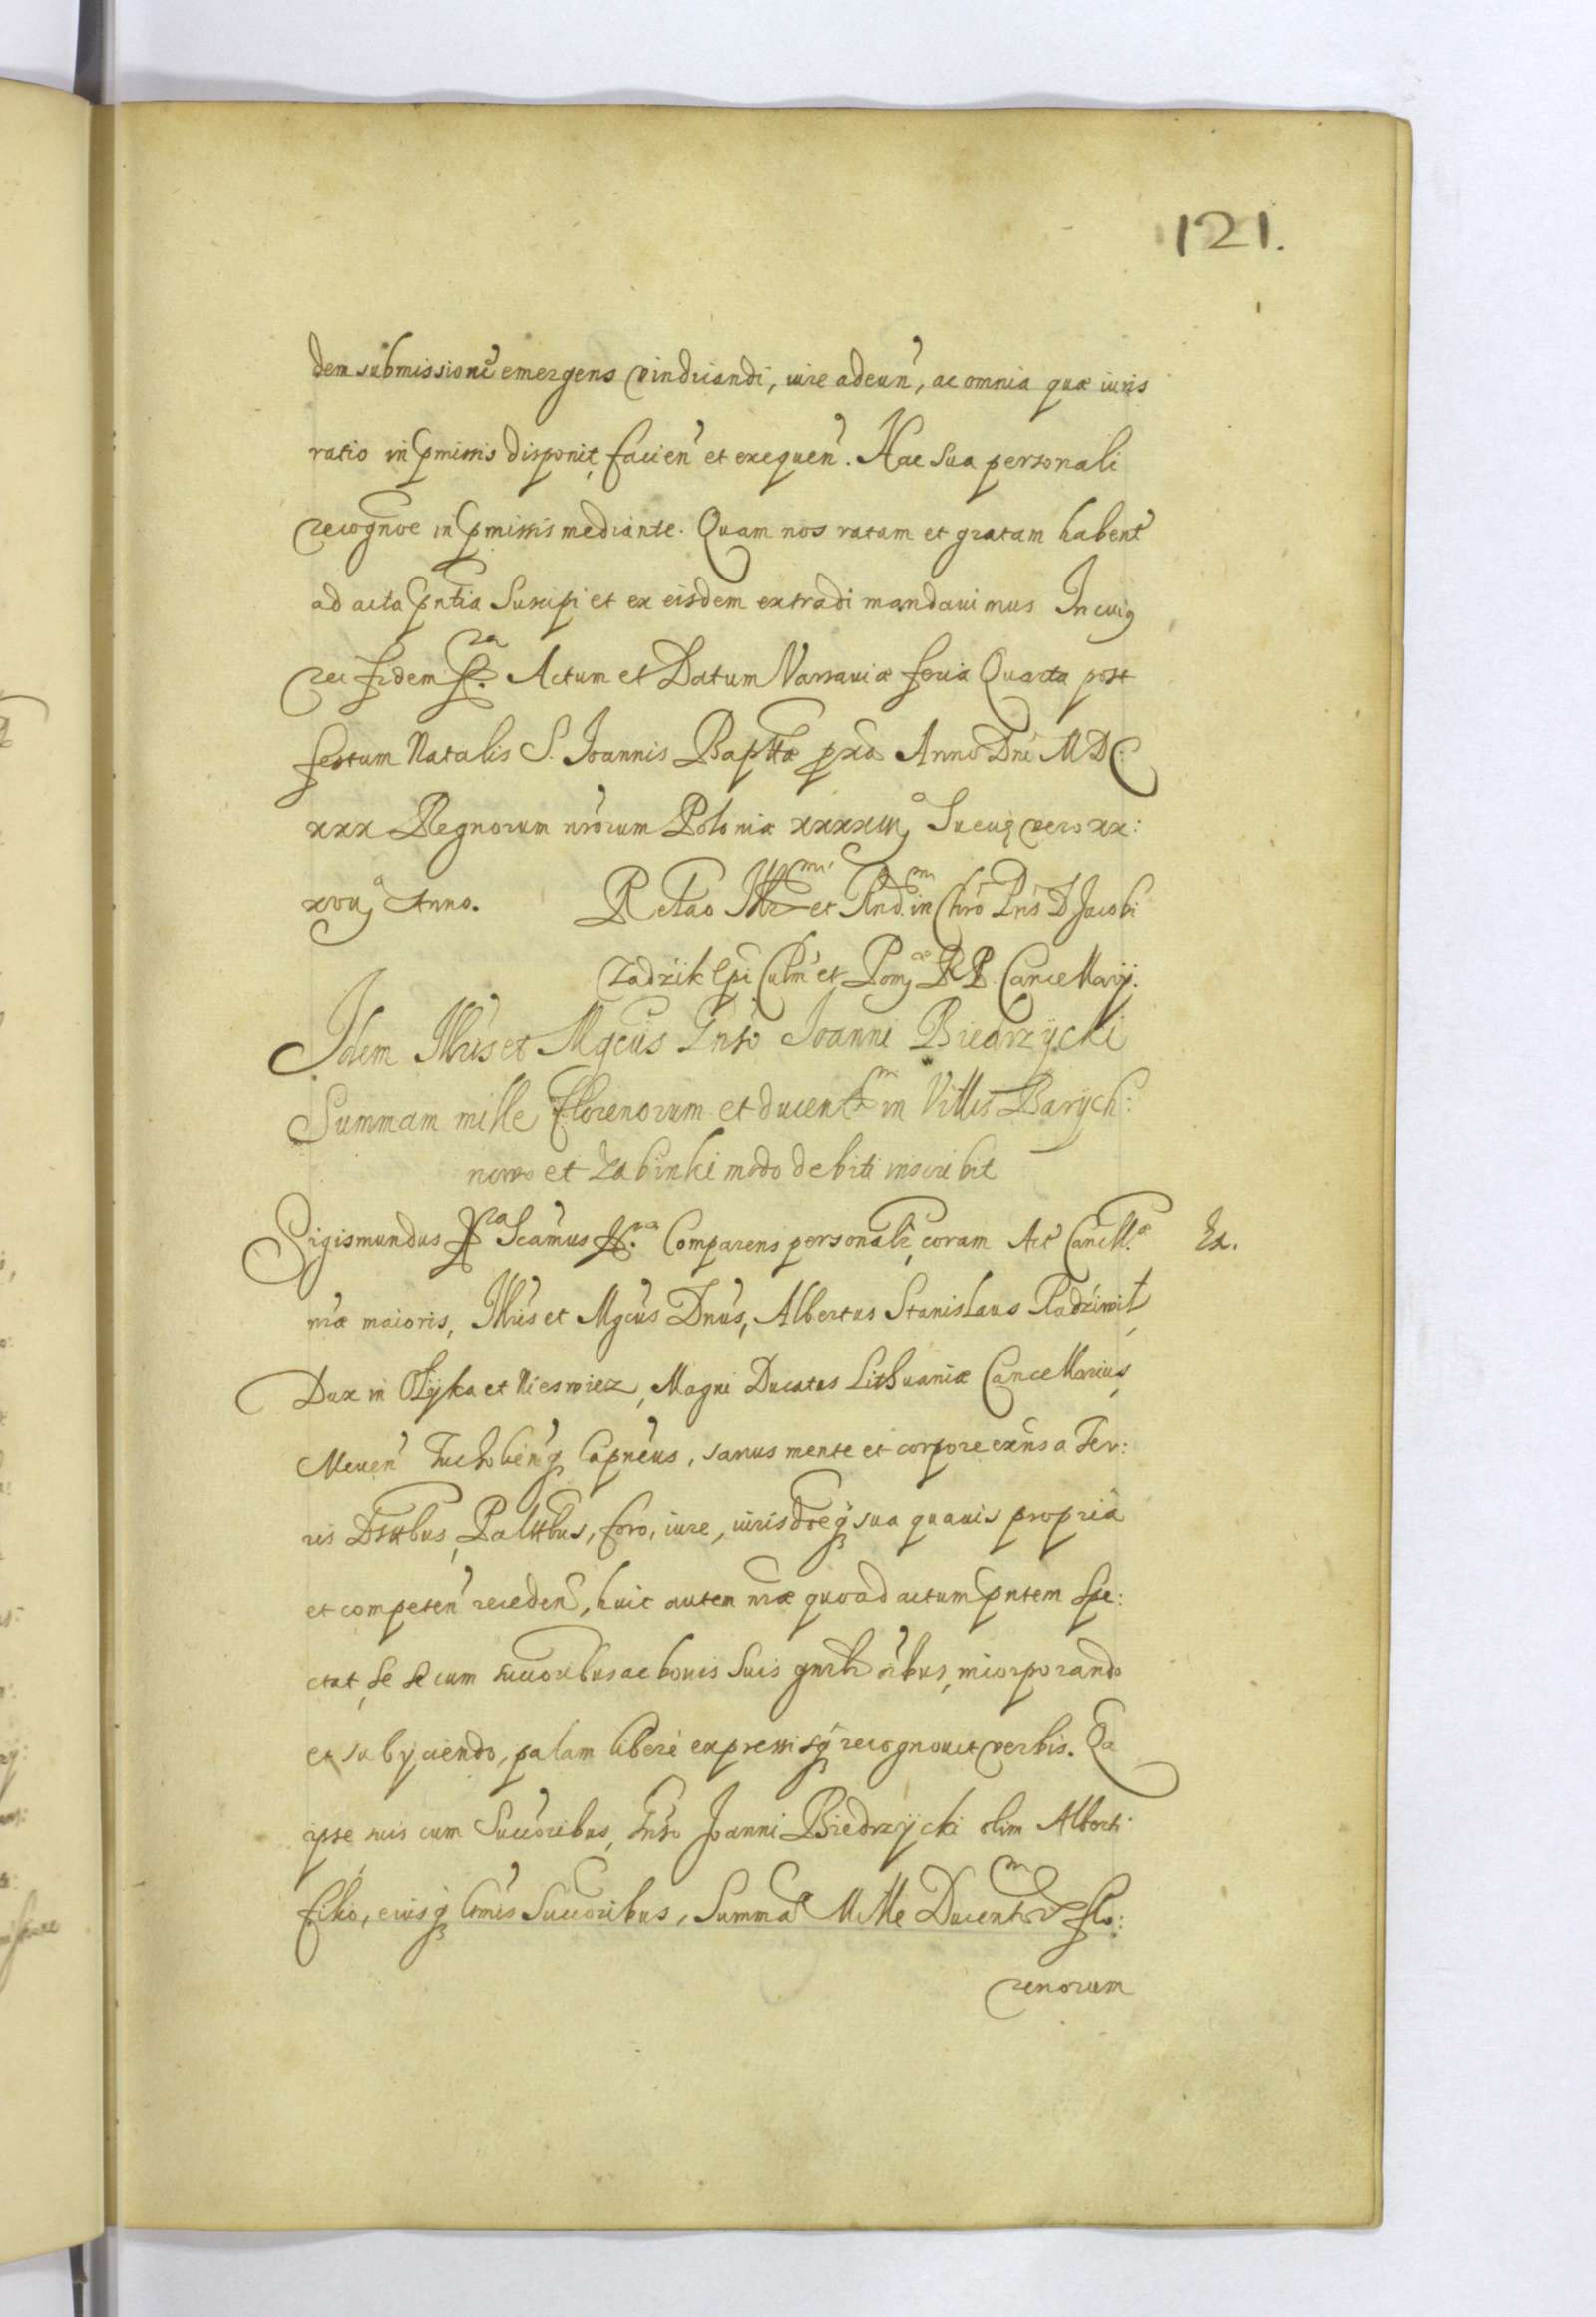 121.
dem submissione emergens vindicandi, iure adeun̄, ac omnia quæ iuris
ratio in p̄missis disponit, facien̄ et exequen̄. Hac sua personali
recogn̄oe in p̄missis mediante. Quam nos ratam et gratam haben̄t
ad acta p̄ntia suscipi et ex eisdem extradi mandauimus In cuiꝰ
rei fidem Actum et Datum Varsauiæ feria Quarta post
festum Natalis S. Ioannis Bapttæ pxa Anno Dn̄i MDC.
xxx Regnorum n̄rorum Poloniæ xxxxiij Sueciæ vero xx:
xvij Anno. Rel̄ao Illr̄mi et Rnd.m in Chr̄o Pn̄s D Jacobi
Zadzik Ep̄i Culm̄ et Pom RP. Cancellarij.
Idem Illr̄is et Mgcūs Gn̄so Ioanni Biedrzycki
Summam mille florenorum et ducent.m in Villis Barych:
nowo et Zabinki modo debiti inscribit
Sigismundus Scam̄us Comparens personalr̄, coram Act̄ Cancell.æ Ex.
n̄ræ maioris, Illr̄is et Mgcūs Dn̄us, Albertus Stanislaus Radziwił,
Dux in Ołyka et Nieswiez, Magni Ducatus Lithuaniæ Cancellarius,
Meuen̄ Tucholien̄q Capn̄eus, sanus mente et corpore exn̄s a Ter:
ris Dstt̄bus, Palttbus, foro, iure, iurisdōeq sua quauis propria
et competen̄ receden̄, huic autem n̄ræ quoad actum p̄ntem spe:
ctat, se se cum succoribus ac bonis suis gn̄rlr oībus, incorporando
et subijciendo, palam liberè expressisq recognouit verbis. Qa
ipse suis cum Succ̄oribus, Gn̄so Joanni Biedrzycki olim Alberti
filio, eiusq l̄mis Succ̄oribus, Summā Mille Ducent.m flo:
renorum